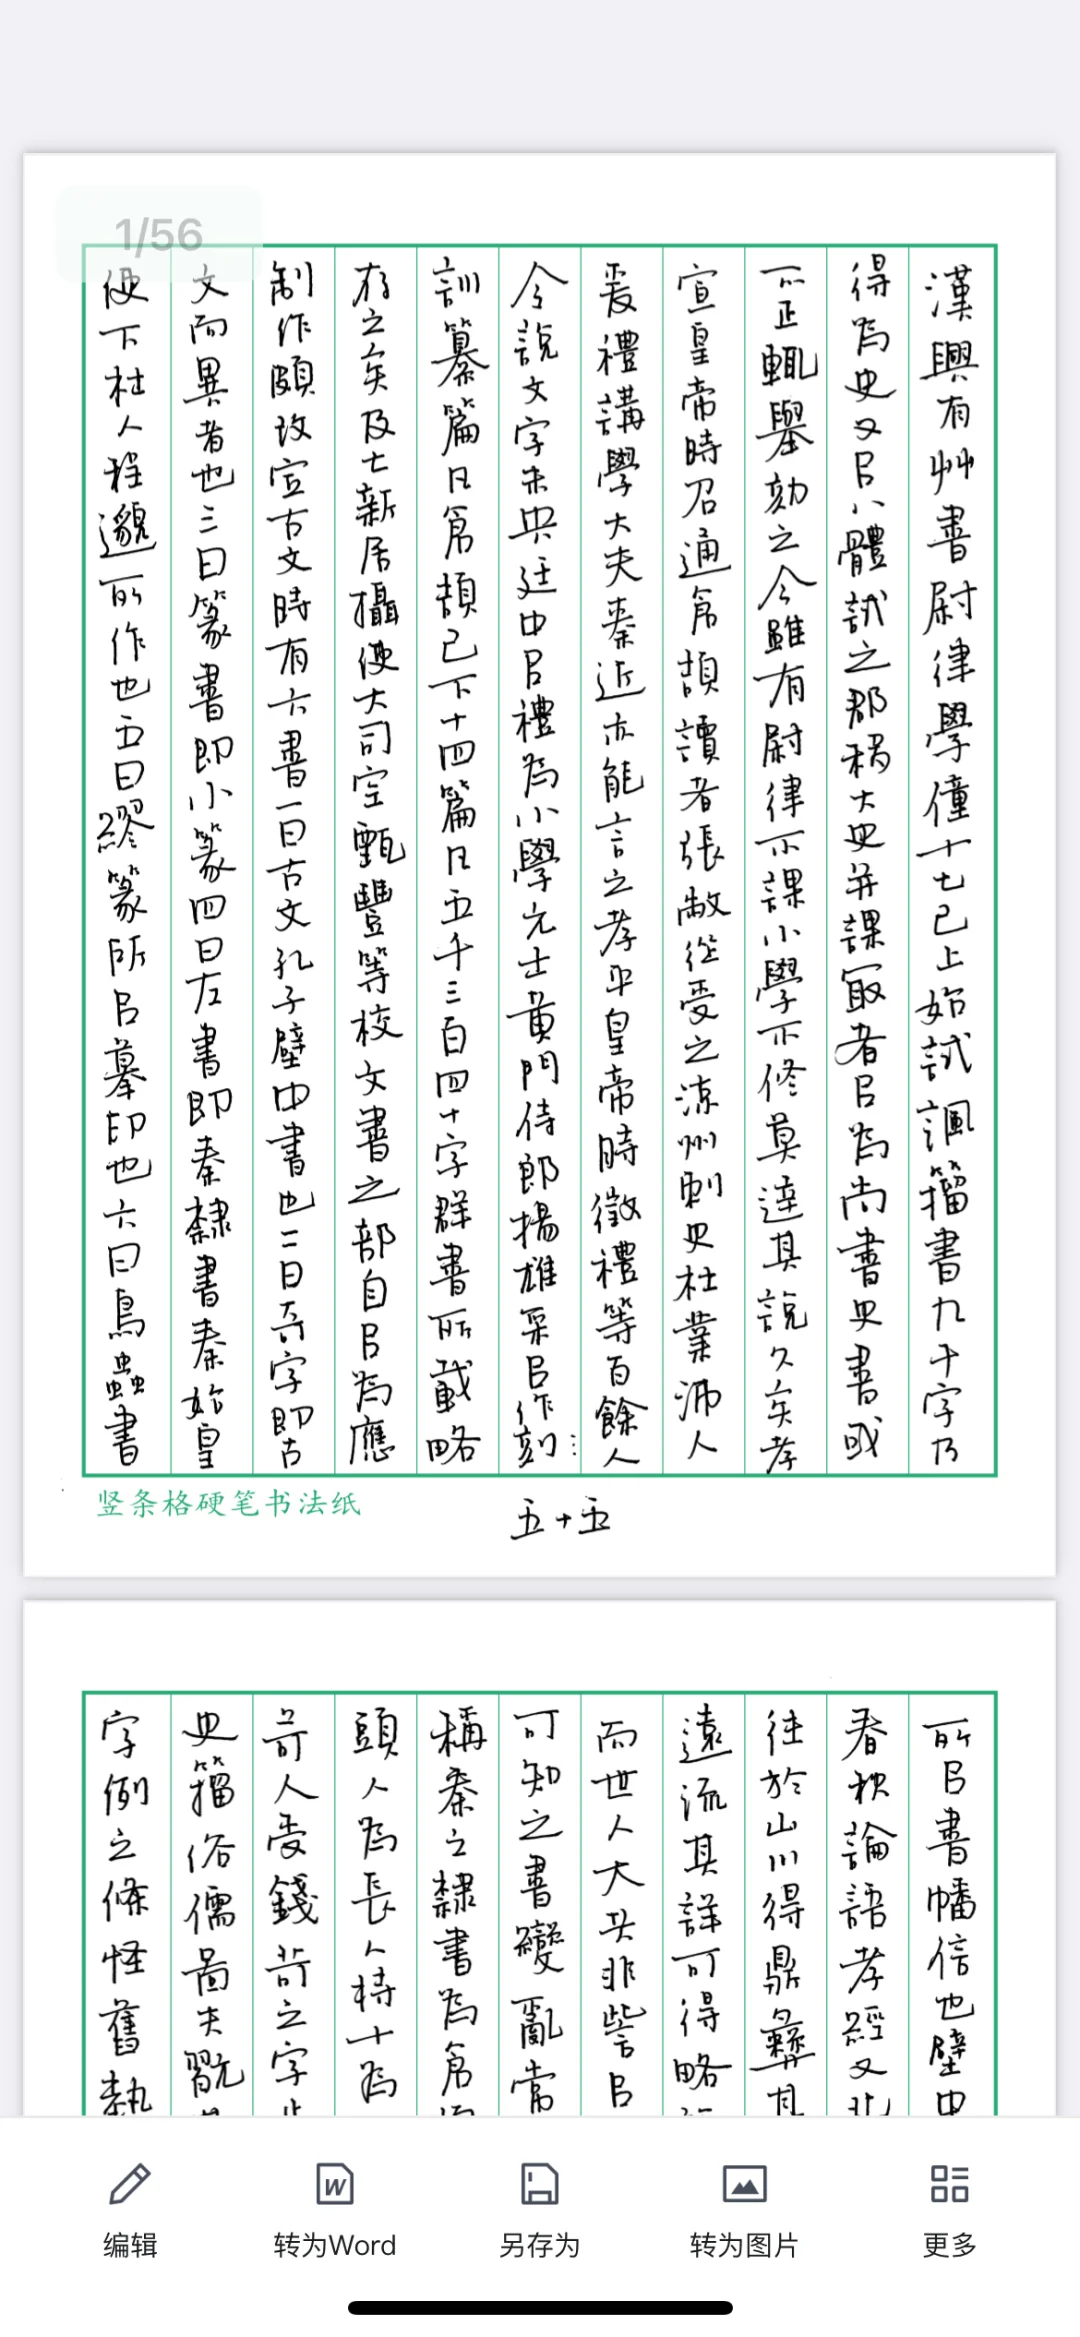 1/56
漢興有艸書尉律學僮十七已上始試諷籀書九千字乃
得為史又㠯八體試之郡移大史并課㝡者㠯為尚書史書或
不正輒舉劾之今雖有尉律不課小學不修莫達其說久矣孝
宣皇帝時召通倉頡讀者張敞從受之涼州刺史杜業沛人
爰禮講學大夫秦近亦能言之孝平皇帝時徵禮等百餘人
令說文字未央廷中㠯禮為小學元士黃門侍郎揚雄采㠯作刻
訓纂篇凡倉頡已下十四篇凡五千三百四十字群書所載略
存之矣及亡新居攝使大司空甄豐等校文書之部自㠯為應
制作頗改定古文時有六書一曰古文孔子壁中書也二曰奇字即古
文而異者也三曰篆書即小篆四曰左書即秦隸書秦始皇
使下杜人程邈所作也五曰繆篆所㠯摹印也六曰鳥蟲書
竖条格硬笔书法纸
五十五
所㠯書幡信也壁中
春秋論語孝經又北
往於山川得鼎彝其
遠流其詳可得略
而世人大共非訾㠯
可知之書變亂常
稱秦之隸書為倉
頭人為長人持十為
苛人受錢苛之字止
史籀俗儒啚夫翫
字例之條怪舊埶
编辑
转为Word
另存为
转为图片
更多